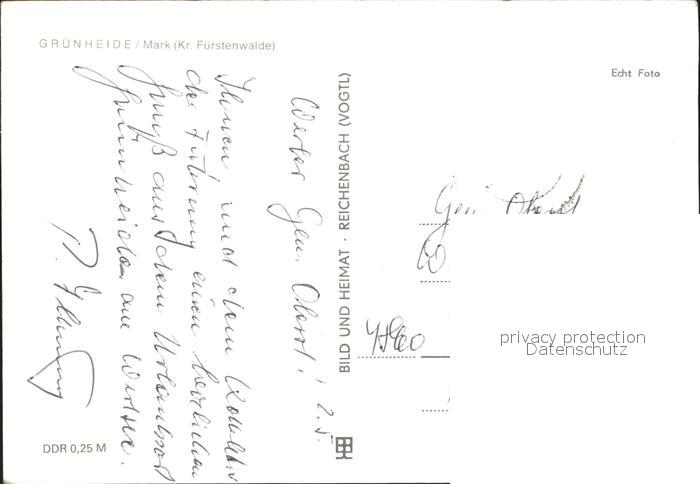 GRÜNHEIDE / Mark (Kr. Fürstenwalde)
Echt Foto
Werter Gen. Oberst! 2.5.
Ihnen und dem Kollektiv
der Führung einen herzlichen
Gruß aus dem Urlaubsort
Grünheide am Werlsee.
P.
BILD UND HEIMAT · REICHENBACH (VOGTL)
Gen. Oberst
privacy protection
Datenschutz
DDR 0,25 M